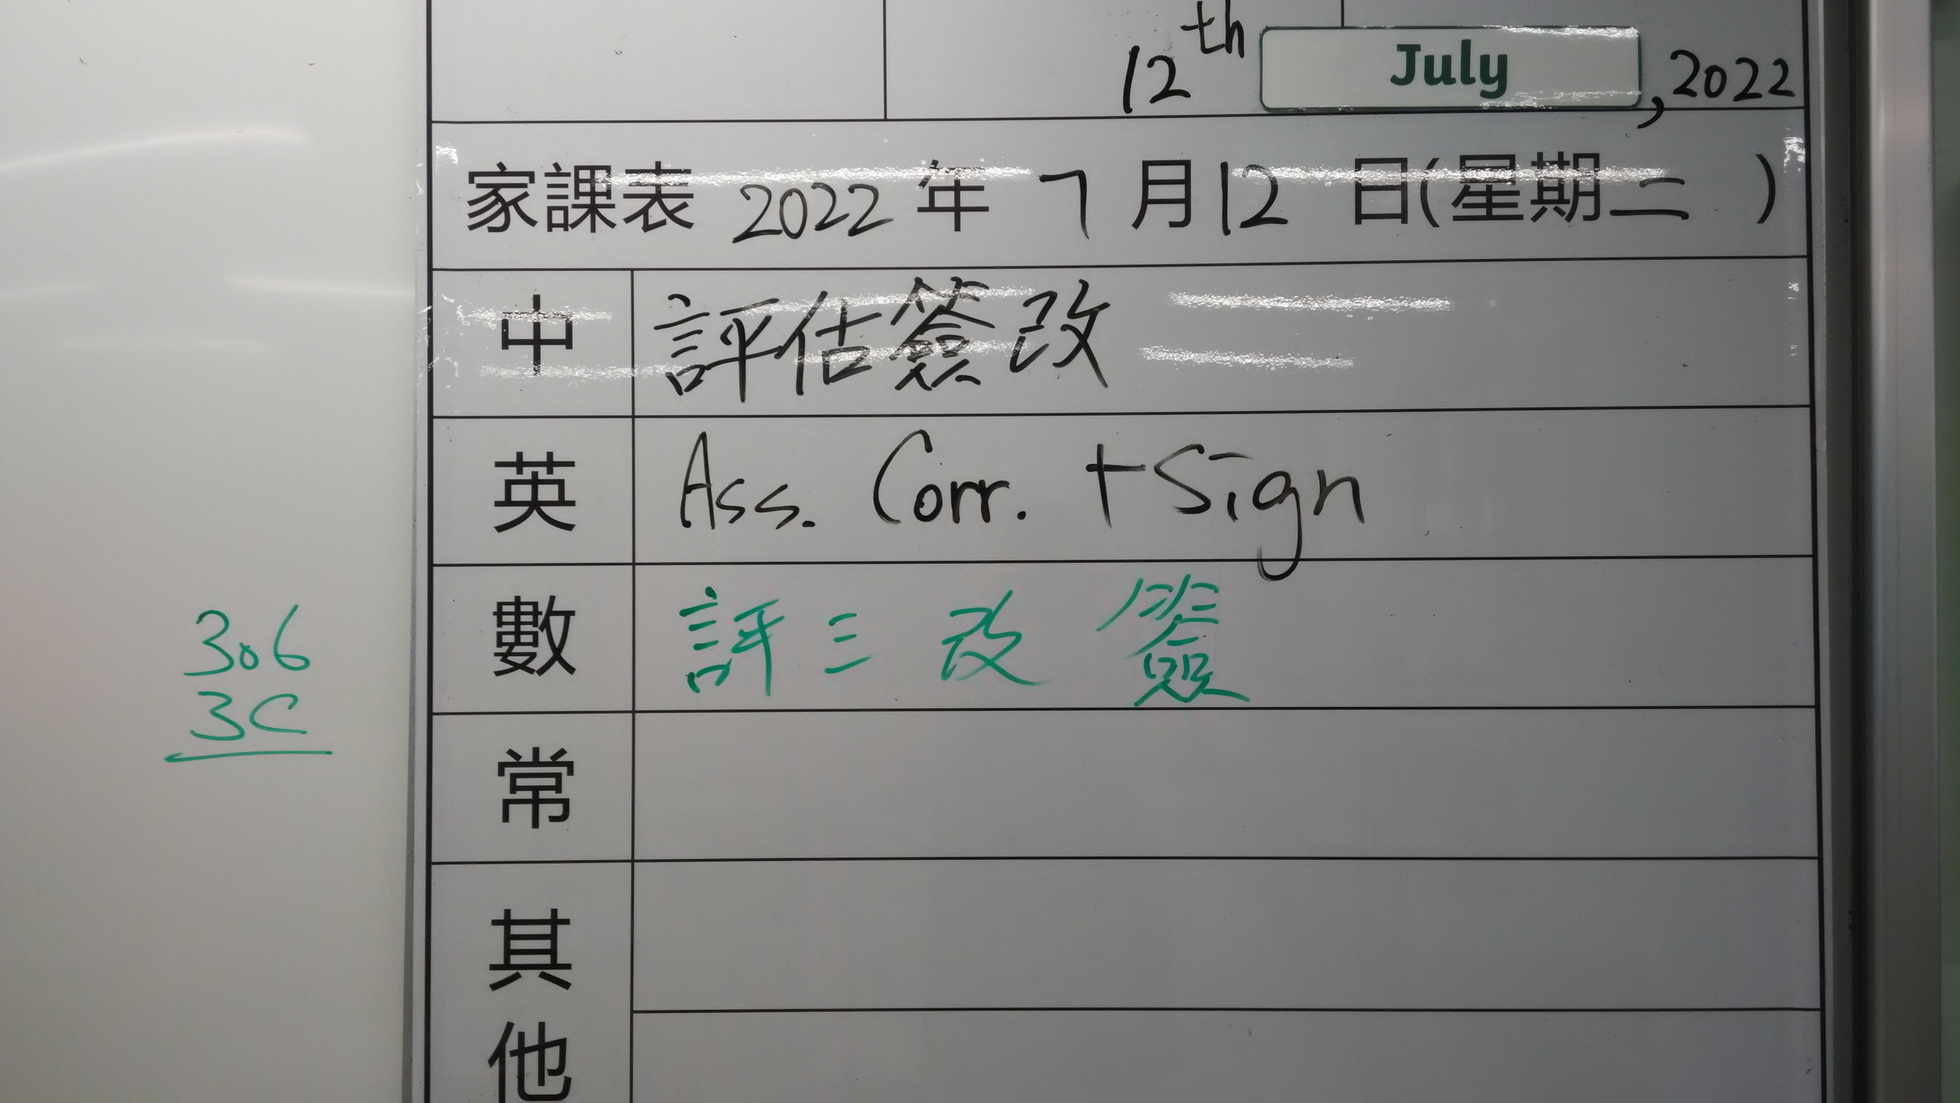 12th July, 2022
家課表 2022 年 7 月 12 日(星期二 )
中 評估簽改
英 Ass. Corr. + Sign
數 評三 改 簽
常
其
他
306
3C